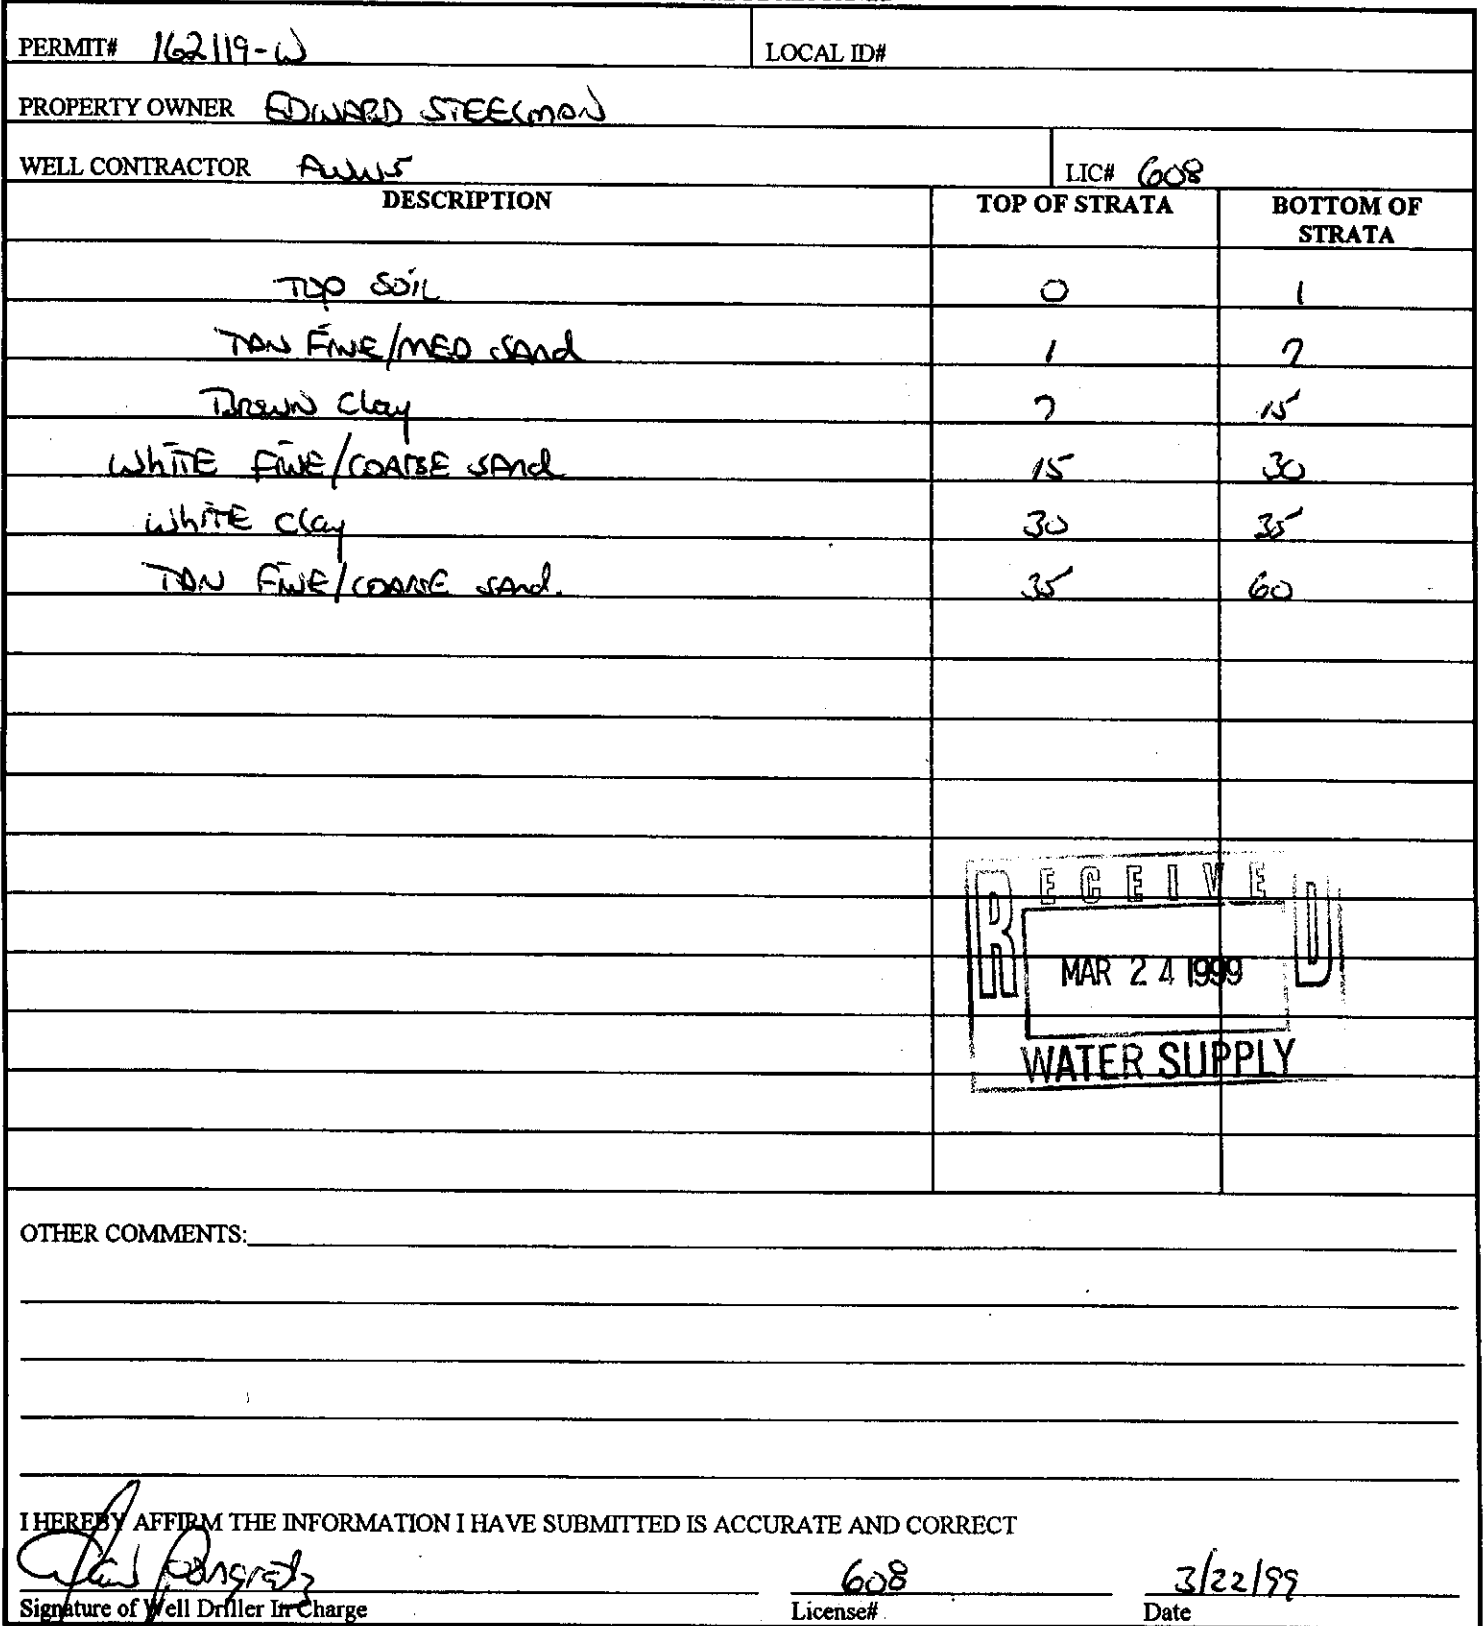 PERMIT# 162119-W LOCAL ID#
PROPERTY OWNER EDWARD STEELMAN
WELL CONTRACTOR AWWS LIC# 608
DESCRIPTION TOP OF STRATA BOTTOM OF STRATA
TOP SOIL 0 1
TAN FINE/MED SAND 1 7
Brown Clay 7 15
WHITE FINE/COARSE SAND 15 30
WHITE Clay 30 35
TAN FINE/COARSE SAND. 35 60
RECEIVED
MAR 24 1999
WATER SUPPLY
OTHER COMMENTS:
I HEREBY AFFIRM THE INFORMATION I HAVE SUBMITTED IS ACCURATE AND CORRECT
608 3/22/99
Signature of Well Driller In Charge License# Date